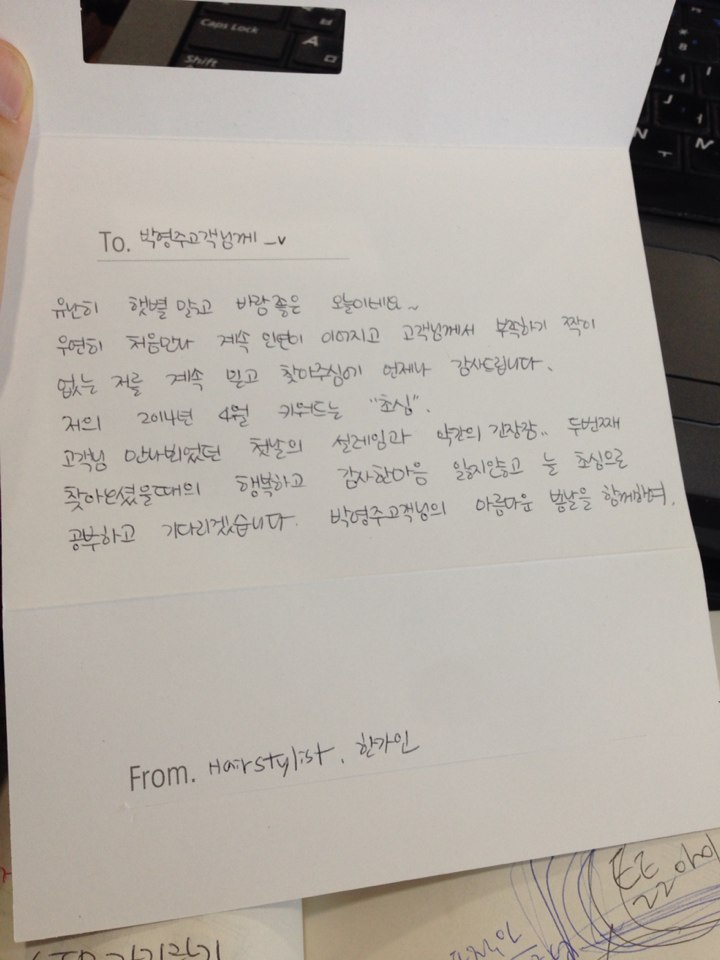 Caps Lock
A
Shift
To. 박영주고객님께 -v
유난히 햇볕 맑고 바람좋은 오늘이네요~
우연히 처음만나 계속 인연이 이어지고 고객님께서 부족하기 짝이
없는 저를 계속 믿고 찾아주심에 언제나 감사드립니다.
저의 2014년 4월 키워드는 "초심".
고객님 만나뵈었던 첫날의 설레임과 약간의 긴장감.. 두번째
찾아오셨을때의 행복하고 감사한마음 잃지않고 늘 초심으로
공부하고 기다리겠습니다. 박영주고객님의 아름다운 봄날을 함께하며.
From. Hairstylist. 한가인